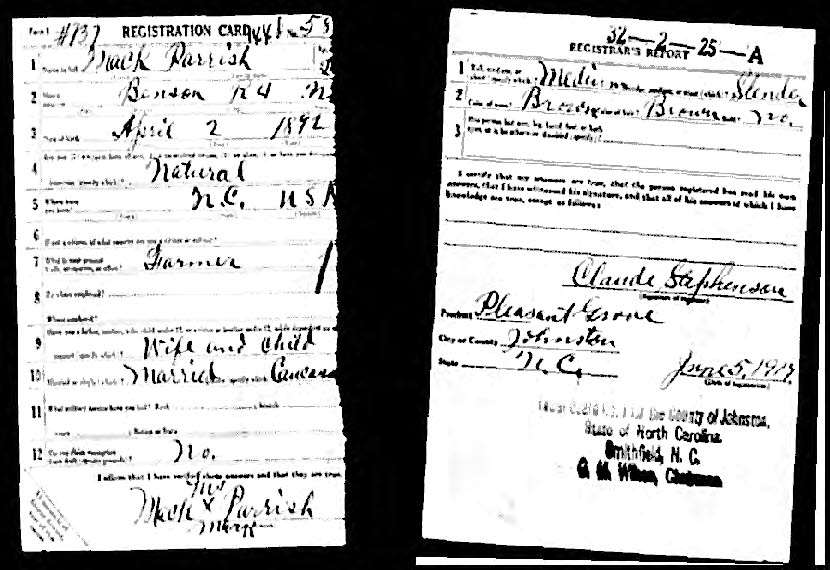 Form 1 #737 REGISTRATION CARD No. 58
1 Name in full Mack Parrish
2 Home address Benson R4
3 Date of birth April 2 1892
4 Natural
5 Where were you born? N.C. USA
6 If not a citizen, of what country are you a citizen or subject?
7 What is your present trade, occupation, or office? Farmer
8 By whom employed?
Where employed?
9 Have you a father, mother, wife, child under 12, or a sister or brother under 12, solely dependent on
support (specify which)? Wife and child
10 Married or single (which)? Married Race (specify which)?
11 What military service have you had? Rank branch
years Nation or State
12 Do you claim exemption from draft (specify grounds)? No.
I affirm that I have verified above answers and that they are true.
his
Mack X Parrish
mark
32-2-25-A
REGISTRAR'S REPORT
1 Tall, medium, or short (specify which)? Slender, medium, or stout (which)? Slender
2 Color of eyes? Brown Color of hair? Brown Bald? No.
3 Has person lost arm, leg, hand, foot, or both
eyes, or is he otherwise disabled (specify)?
I certify that my answers are true, that the person registered has read his own
answers, that I have witnessed his signature, and that all of his answers of which I have
knowledge are true, except as follows:
Claude Stephenson
(Signature of registrar)
Precinct Pleasant Grove
City or County Johnston
State N.C. June 5, 1917
(Date of registration)
for the County of Johnston,
State of North Carolina
Smithfield, N. C.
Chairman